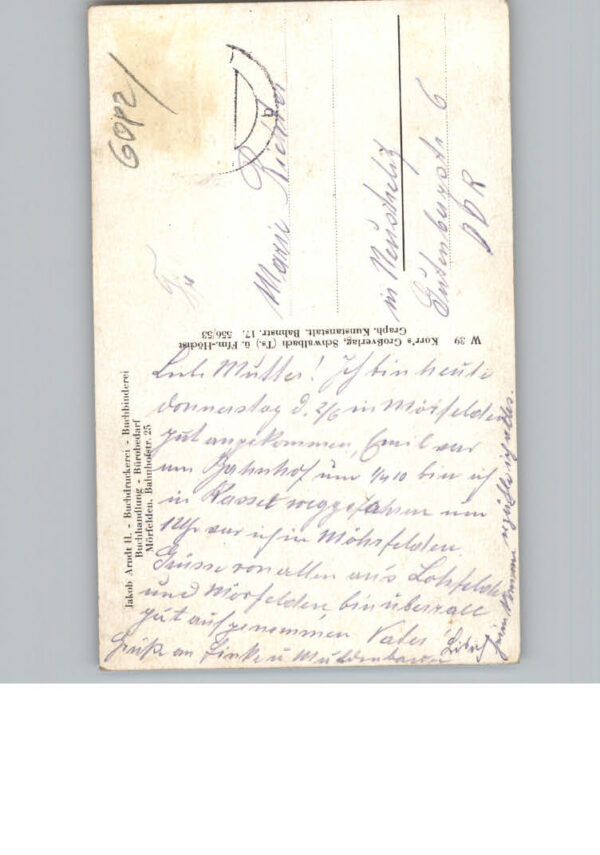 6012/
Marie Richter
in Neuschelitz
Gutenbergstr 6
DDR
W 39 Korr's Großverlag, Schwalbach (Ts.) ü. Ffm.-Höchst
Graph. Kunstanstalt. Bahnstr. 17. 556/53
Jakob Arndt II. - Buchdruckerei - Buchbinderei
Buchhandlung - Bürobedarf
Mörfelden, Bahnhofstr. 25
Liebe Mutter! Ich bin heute
Donnerstag d. 2/6 in Mörfelden
gut angekommen, Emil war
am Bahnhof um 1/4 10 bin ich
in Kassel weggefahren um
1 Uhr war ich in Möhrfelden.
Grüsse von allen aus Lohfelden
und Mörfelden, bin überall
gut aufgenommen Vater
Grüße an Linke u
beim kommen erzähle ich alles.